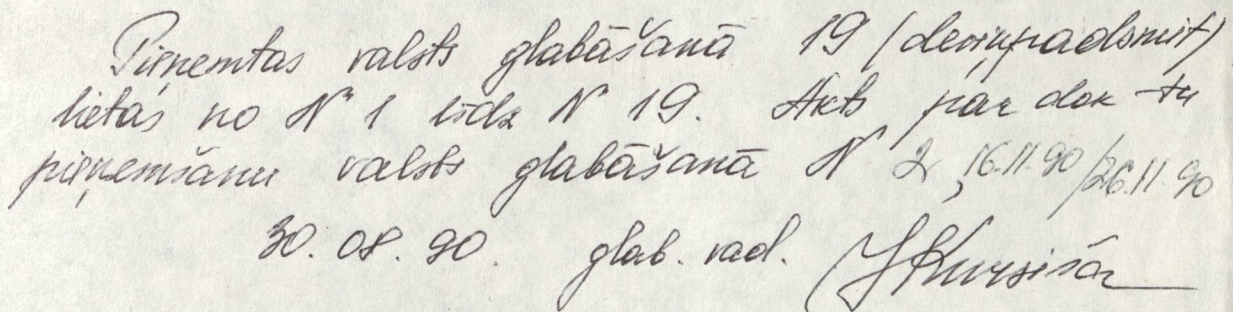 Pieņemtas valsts glabāšanā 19 (deviņpadsmit)
lietas no N 1 līdz N 19. Akts par dok-tu
pieņemšanu valsts glabāšanā N 2, 16.11.90/26.11.90
30.08.90. glab. vad.